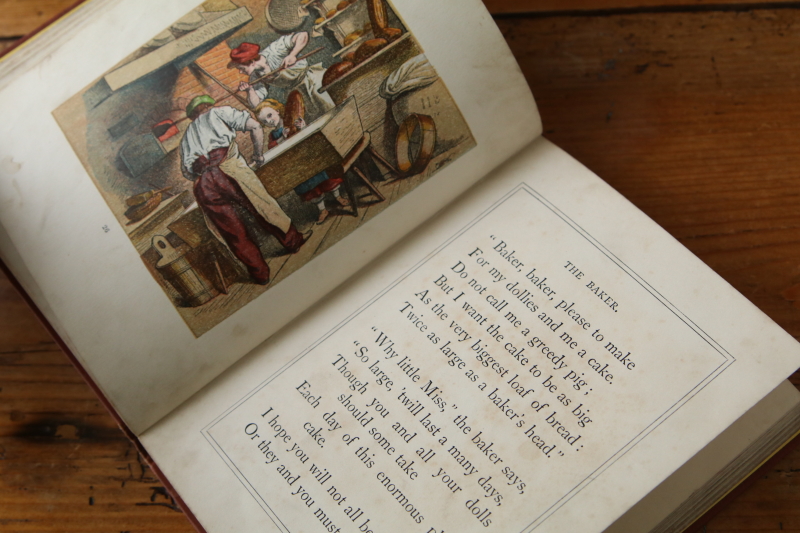 26
THE BAKER.
“Baker, baker, please to make
For my dollies and me a cake.
Do not call me a greedy pig;
But I want the cake to be as big
As the very biggest loaf of bread:
Twice as large as a baker's head.”
“Why little Miss,” the baker says,
“So large, 'twill last a many days,
Though you and all your dolls
should some take
Each day of this enormous
cake.
I hope you will not all be
Or they and you must